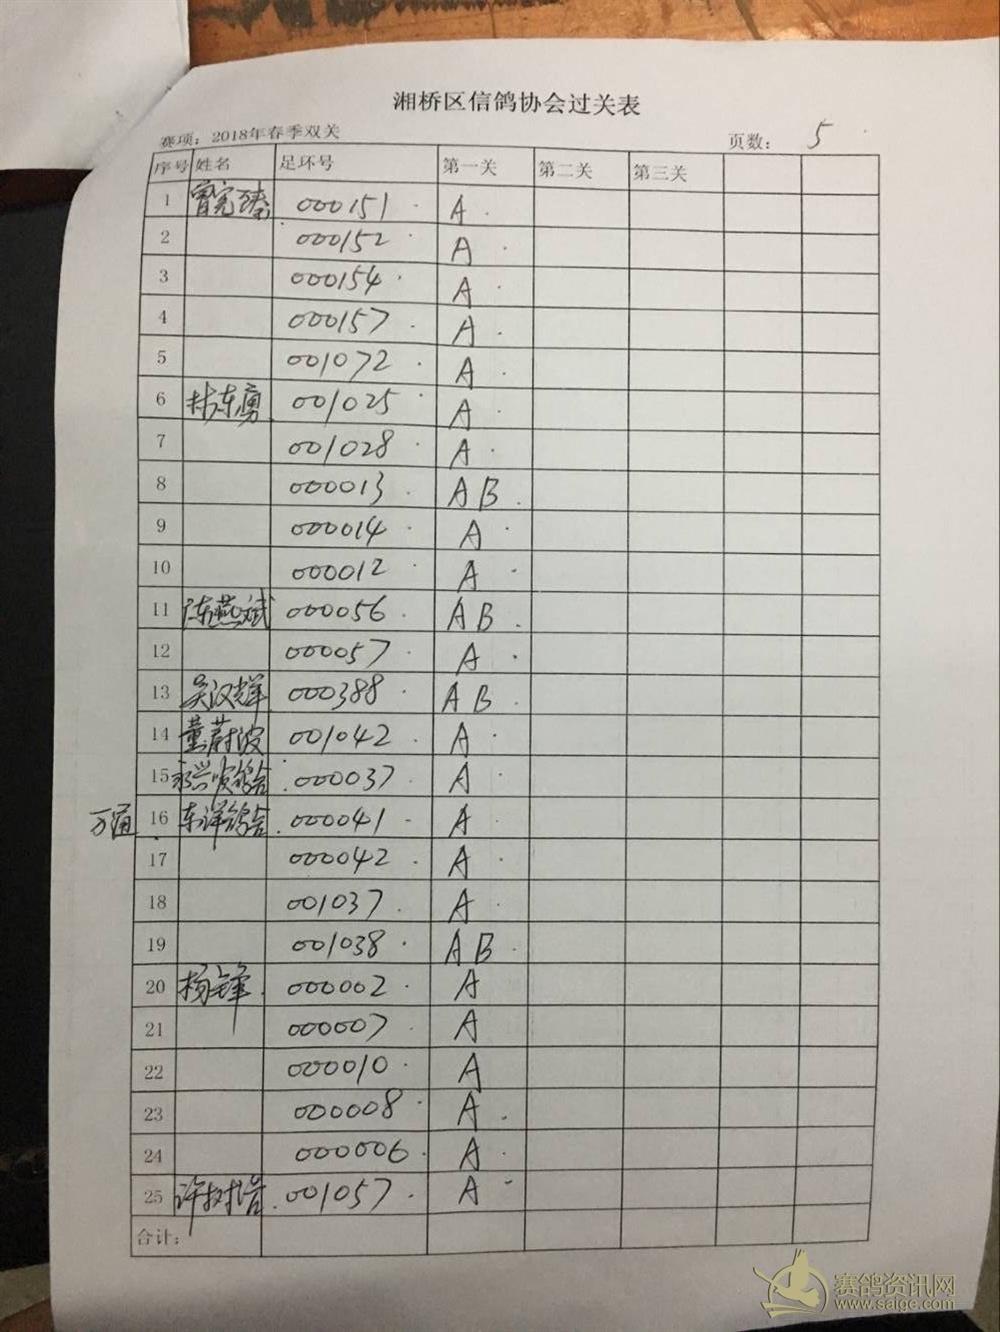 湘桥区信鸽协会过关表
赛项：2018年春季双关 页数： 5
序号 姓名 足环号 第一关 第二关 第三关
1 000151 A
2 000152 A
3 000154 A
4 000157 A
5 001072 A
6 林东勇 001025 A
7 001028 A
8 000013 AB
9 000014 A
10 000012 A
11 陈燕斌 000056 AB
12 000057 A
13 吴汉辉 000388 AB
14 董蔚波 001042 A
15 永兴 鸽舍 000037 A
万通 16 东洋鸽舍 000041 A
17 000042 A
18 001037 A
19 001038 AB
20 杨锋 000002 A
21 000007 A
22 000010 A
23 000008 A
24 000006 A
25 许树 001057 A
合计：
赛鸽资讯网
www.saige.com